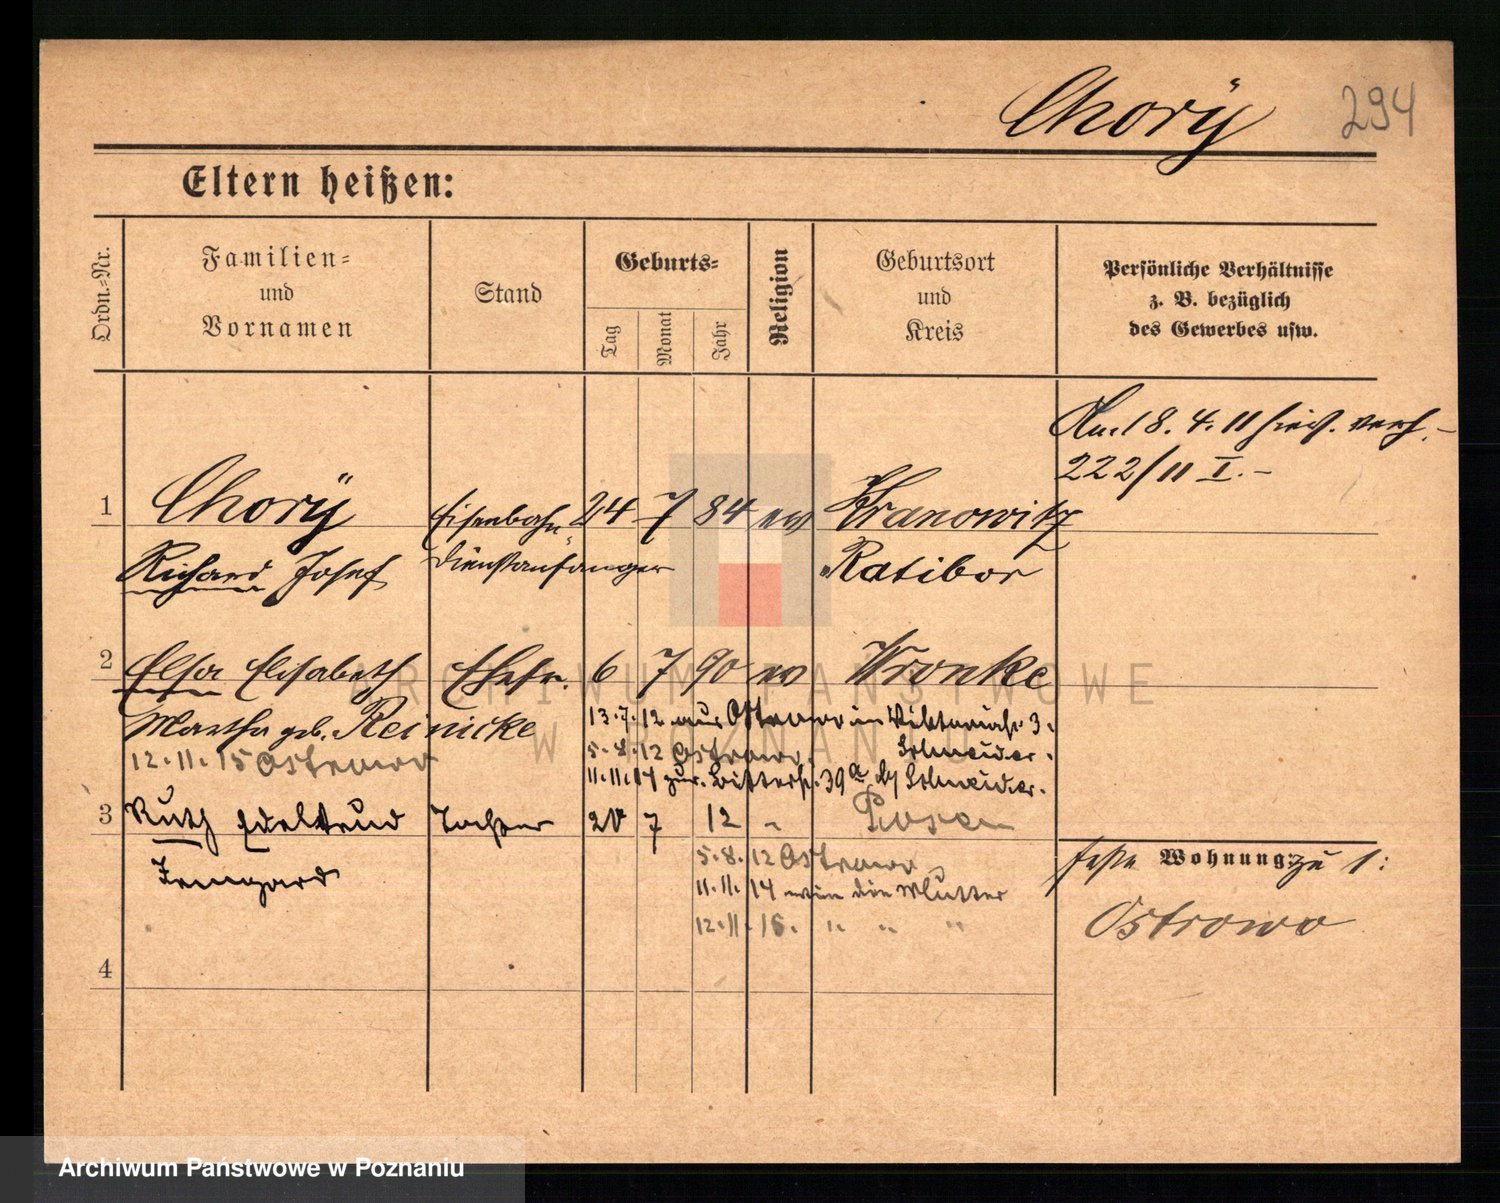 Chorÿ 294
Eltern heißen:
Ordn.-Nr.
Familien-
und
Vornamen
Stand
Geburts-
Tag
Monat
Jahr
Religion
Geburtsort
und
Kreis
Persönliche Verhältnisse
z. B. bezüglich
des Gewerbes usw.
Am 18. 4. 11 hies. verh.
222/11 I.
1 Chorÿ Eisenbahn- 24 7 84 ev Kranowitz
Richard Josef dienstanfänger Ratibor
2 Elsa Elisabeth Ehefr. 6 7 90 ev Wronke
Martha geb. Reinicke
13.7.12 aus Ostrowo in 3.
12.11.15 Ostrowo
5.8.12 Ostrowo. Schneider.
11.11.14 zur. 39a bei Schneider.
3 Ruth Edeltrud Tochter 20 7 12 " Posen
Irmgard
5.8.12 Ostrowo
11.11.14 wie die Mutter
12.11.15. " " "
feste Wohnung zu 1:
Ostrowo
4
ARCHIWUM PAŃSTWOWE
W POZNANIU
Archiwum Państwowe w Poznaniu